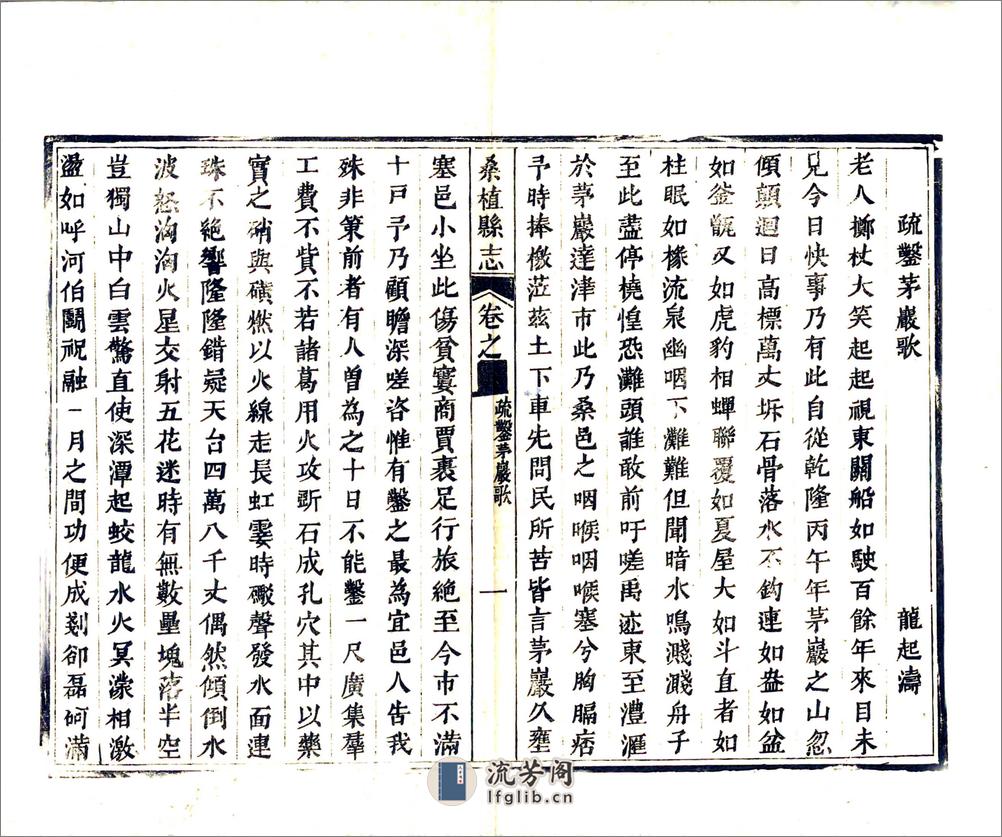 疏鑿茅巖歌　龍起濤
老人擲杖大笑起起視東關船如駛百餘年來目未
見今日快事乃有此自從乾隆丙午年茅巖之山忽
傾顛迴日高標萬丈坼石骨落水不鈎連如盎如盆
如釜甑又如虎豹相蟬聯覆如夏屋大如斗直者如
柱眠如椽流泉幽咽下灘難但聞暗水鳴濺濺舟子
至此盡停橈惶恐灘頭誰敢前吁嗟禹迹東至澧滙
於茅巖達津市此乃桑邑之咽喉咽喉塞兮胸膈痞
予時捧檄蒞茲土下車先問民所苦皆言茅巖久壅
桑植縣志　卷之　疏鑿茅巖歌　一
塞邑小坐此傷貧窶商賈裹足行旅絶至今市不滿
十戸予乃顧瞻深嗟咨惟有鑿之最為宜邑人告我
殊非策前者有人曾為之十日不能鑿一尺廣集羣
工費不貲不若諸葛用火攻斲石成孔穴其中以藥
實之硝與磺燃以火線走長虹霎時礮聲發水面連
珠不絶響隆隆錯疑天台四萬八千丈偶然傾倒水
波怒洶洶火星交射五花迷時有無數壘塊落半空
豈獨山中白雲驚直使深潭起蛟龍水火冥濛相激
盪如呼河伯鬭祝融一月之間功便成剗卻磊砢滿
流芳阁
lfglib.cn